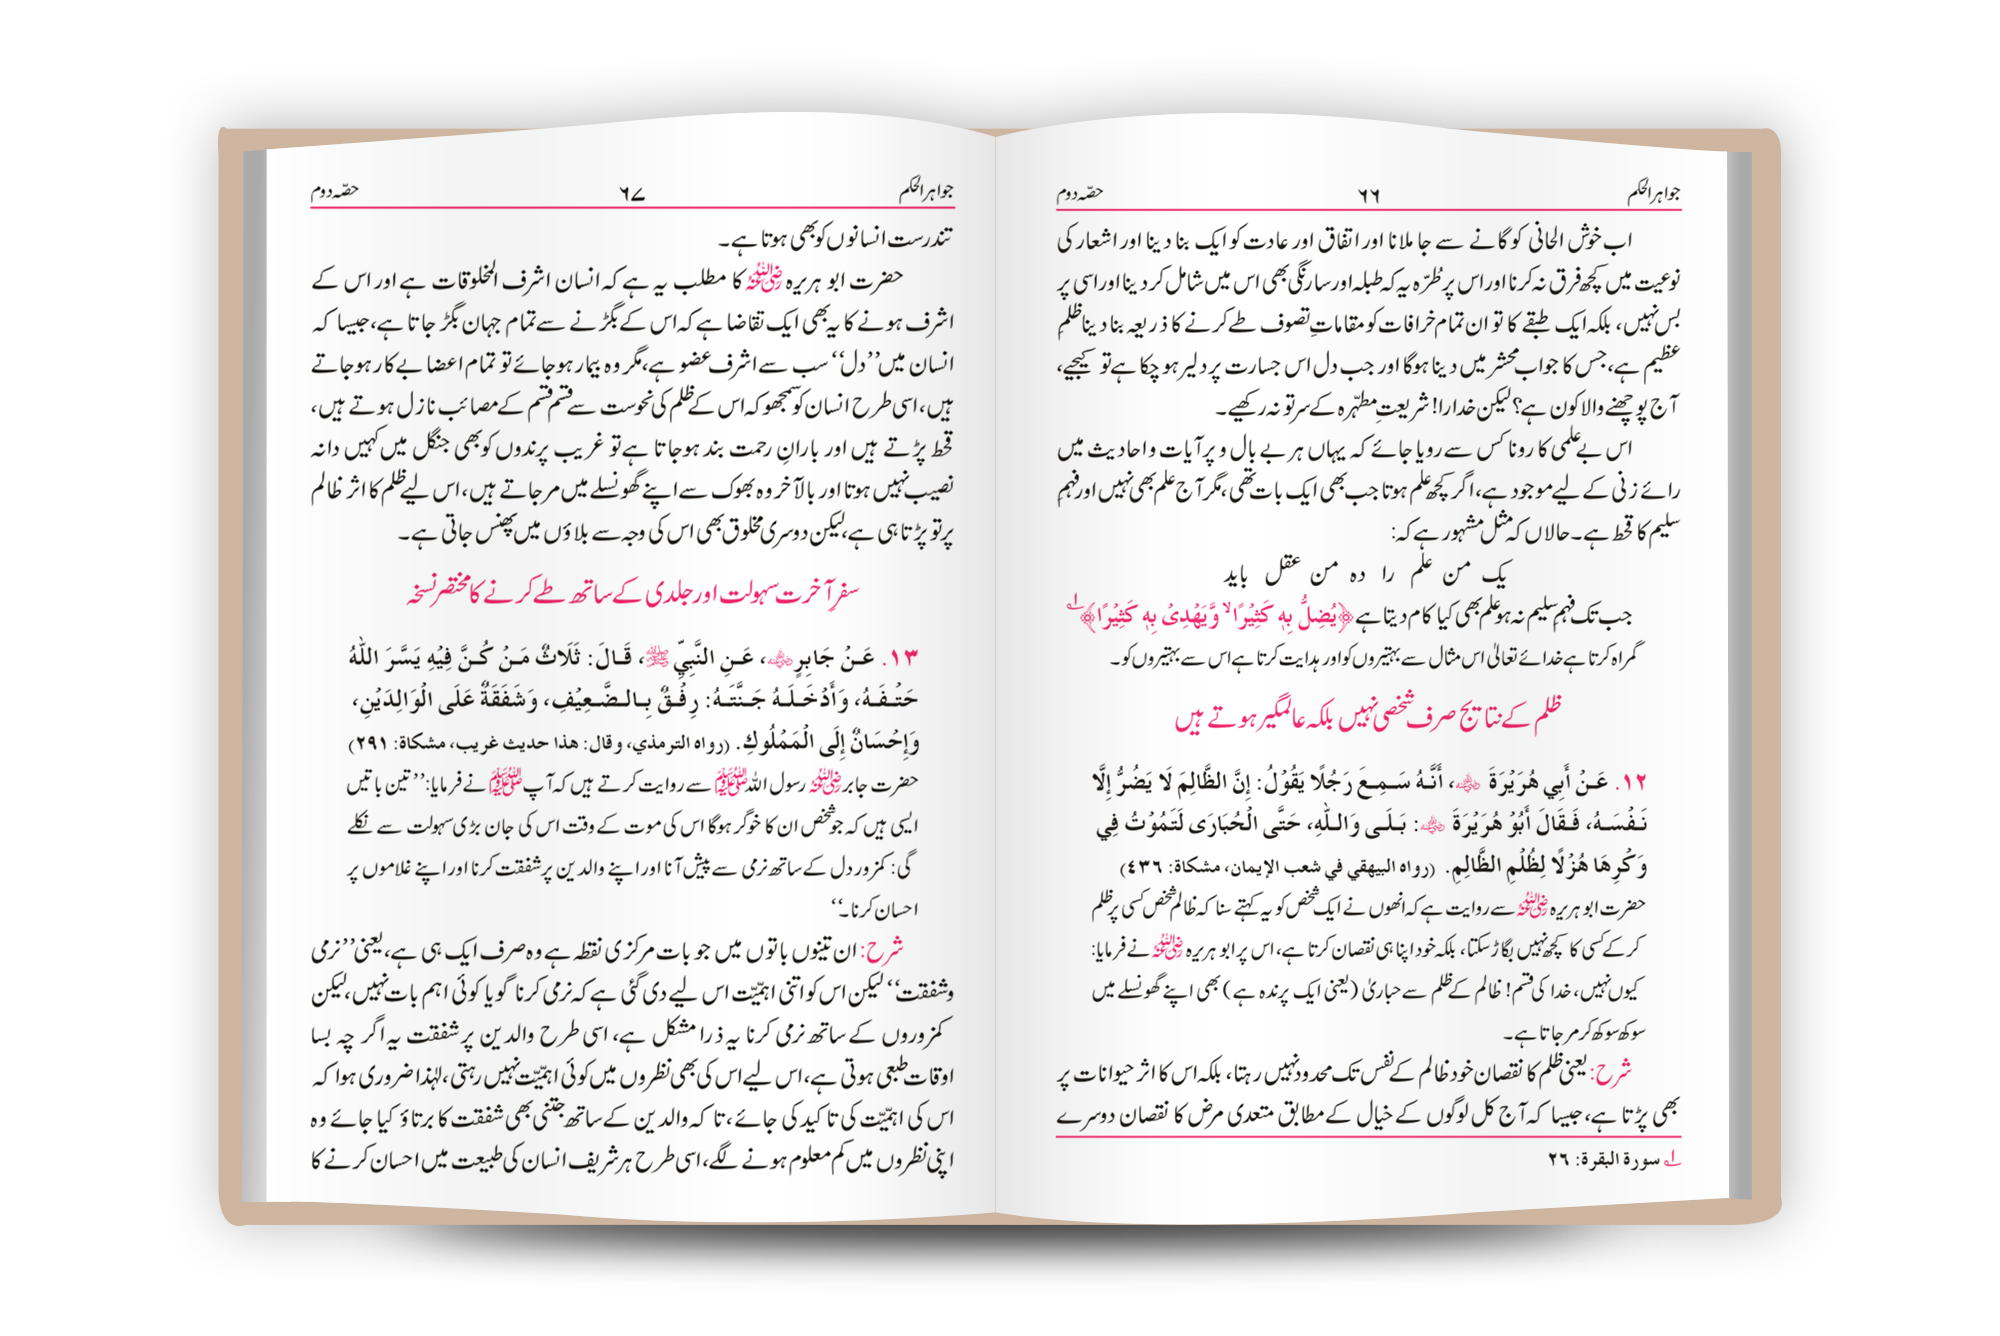 جواہر الحکم ٦٦ حصّہ دوم
اب خوش الحانی کو گانے سے جا ملانا اور اتفاق اور عادت کو ایک بنا دینا اور اشعار کی
نوعیت میں کچھ فرق نہ کرنا اور اس پر طُرّہ یہ کہ طبلہ اور سارنگی بھی اس میں شامل کر دینا اور اسی پر
بس نہیں، بلکہ ایک طبقے کا تو ان تمام خرافات کو مقاماتِ تصوف طے کرنے کا ذریعہ بنا دینا ظلمِ
عظیم ہے، جس کا جواب محشر میں دینا ہوگا اور جب دل اس جسارت پر دلیر ہو چکا ہے تو کیجیے،
آج پوچھنے والا کون ہے؟ لیکن خدارا! شریعتِ مطہّرہ کے سر تو نہ رکھیے۔
اس بے علمی کا رونا کس سے رویا جائے کہ یہاں ہر بے بال و پر آیات و احادیث میں
رائے زنی کے لیے موجود ہے، اگر کچھ علم ہوتا جب بھی ایک بات تھی، مگر آج علم بھی نہیں اور فہمِ
سلیم کا قحط ہے۔ حالاں کہ مثل مشہور ہے کہ:
یک من علم را دہ من عقل باید
جب تک فہمِ سلیم نہ ہو علم بھی کیا کام دیتا ہے ﴿یُضِلُّ بِهٖ كَثِیْرًاۙ وَّیَهْدِیْ بِهٖ كَثِیْرًا﴾ ؂۱
گمراہ کرتا ہے خدائے تعالیٰ اس مثال سے بہتیروں کو اور ہدایت کرتا ہے اس سے بہتیروں کو۔
ظلم کے نتایج صرف شخصی نہیں بلکہ عالمگیر ہوتے ہیں
۱۲. عَنْ أَبِي هُرَيْرَةَ ؓ، أَنَّهُ سَمِعَ رَجُلًا يَقُوْلُ: إِنَّ الظَّالِمَ لَا يَضُرُّ إِلَّا
نَفْسَهُ، فَقَالَ أَبُوْ هُرَيْرَةَ ؓ: بَلَى وَاللّٰهِ، حَتَّى الْحُبَارَى لَتَمُوْتُ فِي
وَكْرِهَا هُزْلًا لِظُلْمِ الظَّالِمِ. (رواه البيهقي في شعب الإيمان، مشكاة: ٤٣٦)
حضرت ابو ہریرہ ؓ سے روایت ہے کہ انھوں نے ایک شخص کو یہ کہتے سنا کہ ظالم شخص کسی پر ظلم
کر کے کسی کا کچھ نہیں بگاڑ سکتا، بلکہ خود اپنا ہی نقصان کرتا ہے، اس پر ابو ہریرہ ؓ نے فرمایا:
کیوں نہیں، خدا کی قسم! ظالم کے ظلم سے حباریٰ (یعنی ایک پرندہ ہے) بھی اپنے گھونسلے میں
سوکھ سوکھ کر مر جاتا ہے۔
شرح: یعنی ظلم کا نقصان خود ظالم کے نفس تک محدود نہیں رہتا، بلکہ اس کا اثر حیوانات پر
بھی پڑتا ہے، جیسا کہ آج کل لوگوں کے خیال کے مطابق متعدی مرض کا نقصان دوسرے
؂۱ سورة البقرة: ٢٦
جواہر الحکم ٦٧ حصّہ دوم
تندرست انسانوں کو بھی ہوتا ہے۔
حضرت ابو ہریرہ ؓ کا مطلب یہ ہے کہ انسان اشرف المخلوقات ہے اور اس کے
اشرف ہونے کا یہ بھی ایک تقاضا ہے کہ اس کے بگڑنے سے تمام جہان بگڑ جاتا ہے، جیسا کہ
انسان میں ’’دل‘‘ سب سے اشرف عضو ہے، مگر وہ بیمار ہو جائے تو تمام اعضا بے کار ہو جاتے
ہیں، اسی طرح انسان کو سمجھو کہ اس کے ظلم کی نحوست سے قسم قسم کے مصائب نازل ہوتے ہیں،
قحط پڑتے ہیں اور بارانِ رحمت بند ہو جاتا ہے تو غریب پرندوں کو بھی جنگل میں کہیں دانہ
نصیب نہیں ہوتا اور بالآخر وہ بھوک سے اپنے گھونسلے میں مر جاتے ہیں، اس لیے ظلم کا اثر ظالم
پر تو پڑتا ہی ہے، لیکن دوسری مخلوق بھی اس کی وجہ سے بلاؤں میں پھنس جاتی ہے۔
سفرِ آخرت سہولت اور جلدی کے ساتھ طے کرنے کا مختصر نسخہ
۱۳. عَنْ جَابِرٍ ؓ، عَنِ النَّبِيِّ ﷺ، قَالَ: ثَلَاثٌ مَنْ كُنَّ فِيْهِ يَسَّرَ اللّٰهُ
حَتْفَهُ، وَأَدْخَلَهُ جَنَّتَهُ: رِفْقٌ بِالضَّعِيْفِ، وَشَفَقَةٌ عَلَى الْوَالِدَيْنِ،
وَإِحْسَانٌ إِلَى الْمَمْلُوكِ. (رواه الترمذي، وقال: هذا حديث غريب، مشكاة: ٢٩١)
حضرت جابر ؓ رسول اللہ ﷺ سے روایت کرتے ہیں کہ آپ ﷺ نے فرمایا: ’’تین باتیں
ایسی ہیں کہ جو شخص ان کا خوگر ہوگا اس کی موت کے وقت اس کی جان بڑی سہولت سے نکلے
گی: کمزور دل کے ساتھ نرمی سے پیش آنا اور اپنے والدین پر شفقت کرنا اور اپنے غلاموں پر
احسان کرنا۔‘‘
شرح: ان تینوں باتوں میں جو بات مرکزی نقطہ ہے وہ صرف ایک ہی ہے، یعنی ’’نرمی
و شفقت‘‘ لیکن اس کو اتنی اہمیّت اس لیے دی گئی ہے کہ نرمی کرنا گویا کوئی اہم بات نہیں، لیکن
کمزوروں کے ساتھ نرمی کرنا یہ ذرا مشکل ہے، اسی طرح والدین پر شفقت یہ اگر چہ بسا
اوقات طبعی ہوتی ہے، اس لیے اس کی بھی نظروں میں کوئی اہمیّت نہیں رہتی، لہٰذا ضروری ہوا کہ
اس کی اہمیّت کی تاکید کی جائے، تا کہ والدین کے ساتھ جتنی بھی شفقت کا برتاؤ کیا جائے وہ
اپنی نظروں میں کم معلوم ہونے لگے، اسی طرح ہر شریف انسان کی طبیعت میں احسان کرنے کا